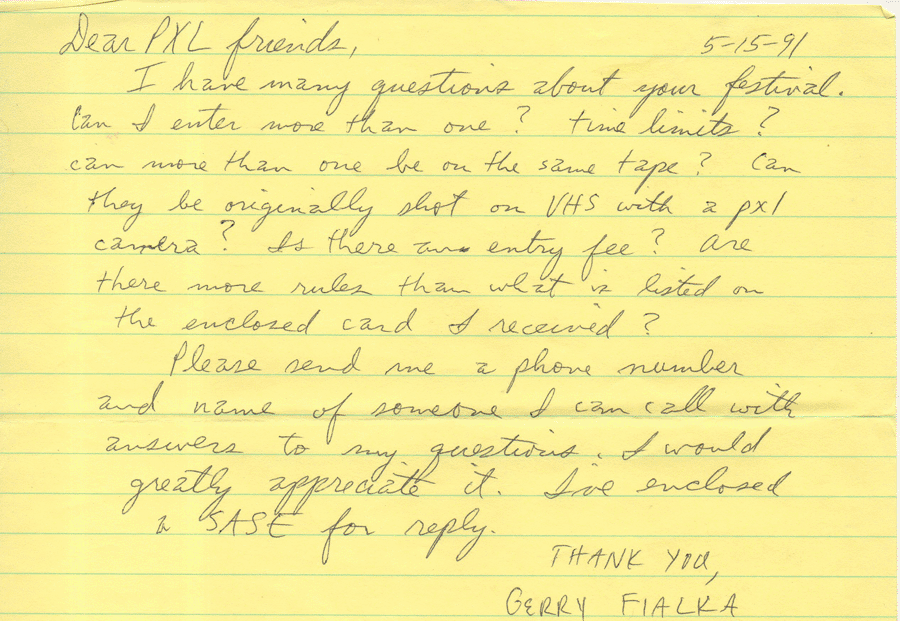 Dear PXL friends, 5-15-91
I have many questions about your festival.
Can I enter more than one? time limits?
can more than one be on the same tape? Can
they be originally shot on VHS with a pxl
camera? Is there an entry fee? Are
there more rules than what is listed on
the enclosed card I received?
Please send me a phone number
and name of someone I can call with
answers to my questions. I would
greatly appreciate it. I've enclosed
a SASE for reply.
THANK YOU,
GERRY FIALKA